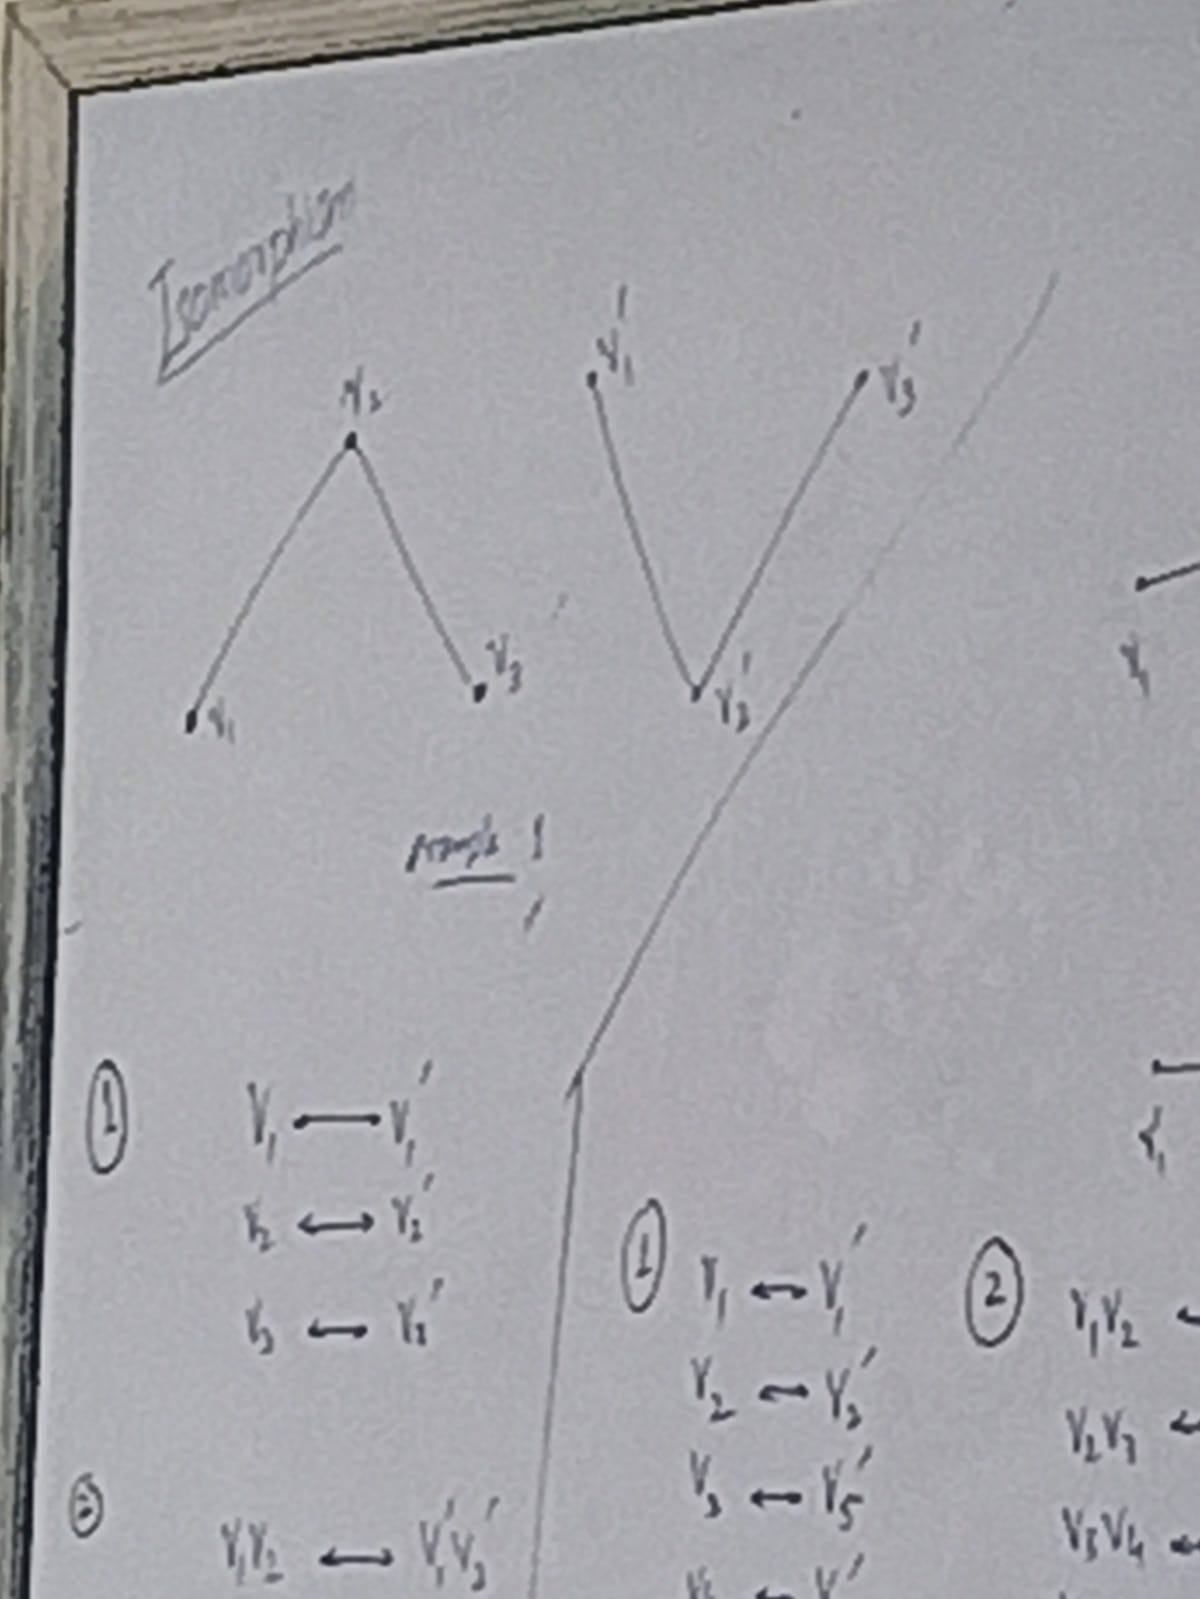 Isomorphism
V₂
V₁
V₃
V₁'
V₃'
V₂'
1
① V₁ V₁'
V₂ ↔ V₂'
V₃ ↔ V₃'
② V₁V₂ ↔ V₁'V₂'
V₁
V₁'
① V₁ ↔ V₁'
V₂ ↔ V₃'
V₃ ↔ V₅'
② V₁V₂
V₂V₃
V₃V₄